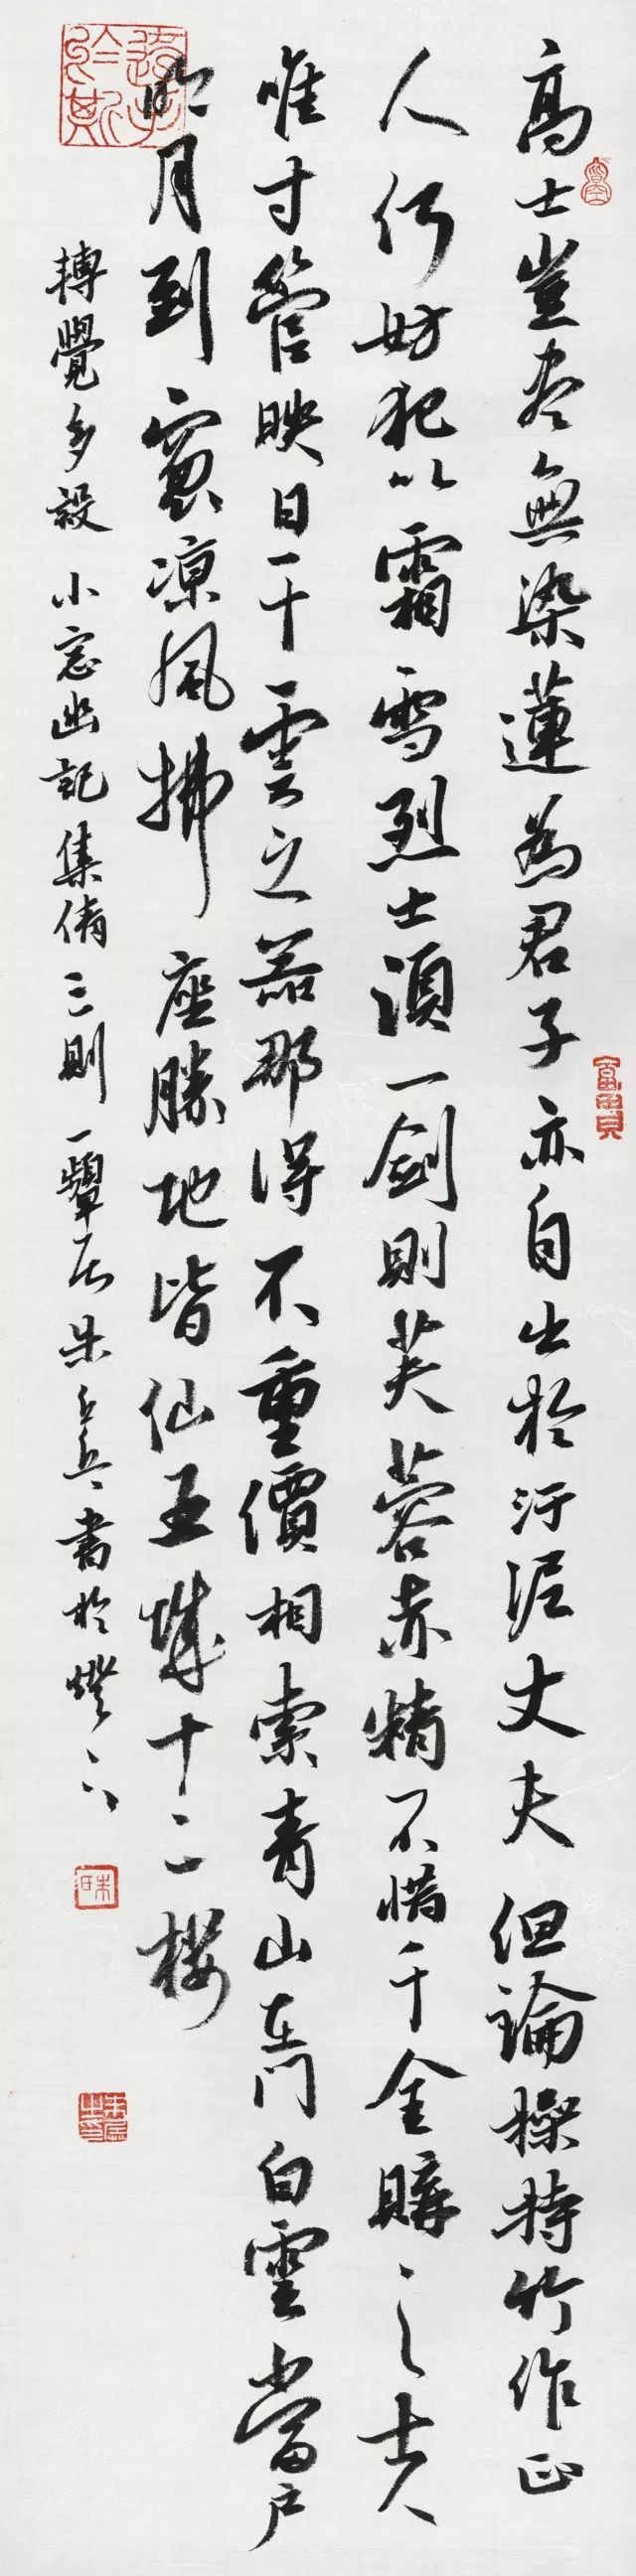 高士豈盡無染蓮為君子亦自出於汙泥丈夫但論操持竹作正
人何妨犯以霜雪烈士須一劍則芙蓉赤精不惜千金購之士人
惟寸管映日干雲之器那得不重價相索青山在門白雲當戶
明月到窗涼風拂座勝地皆仙五城十二樓
摶覺多設小窗幽記集倩三則一顰居朱乒乓書於燈下
富貴